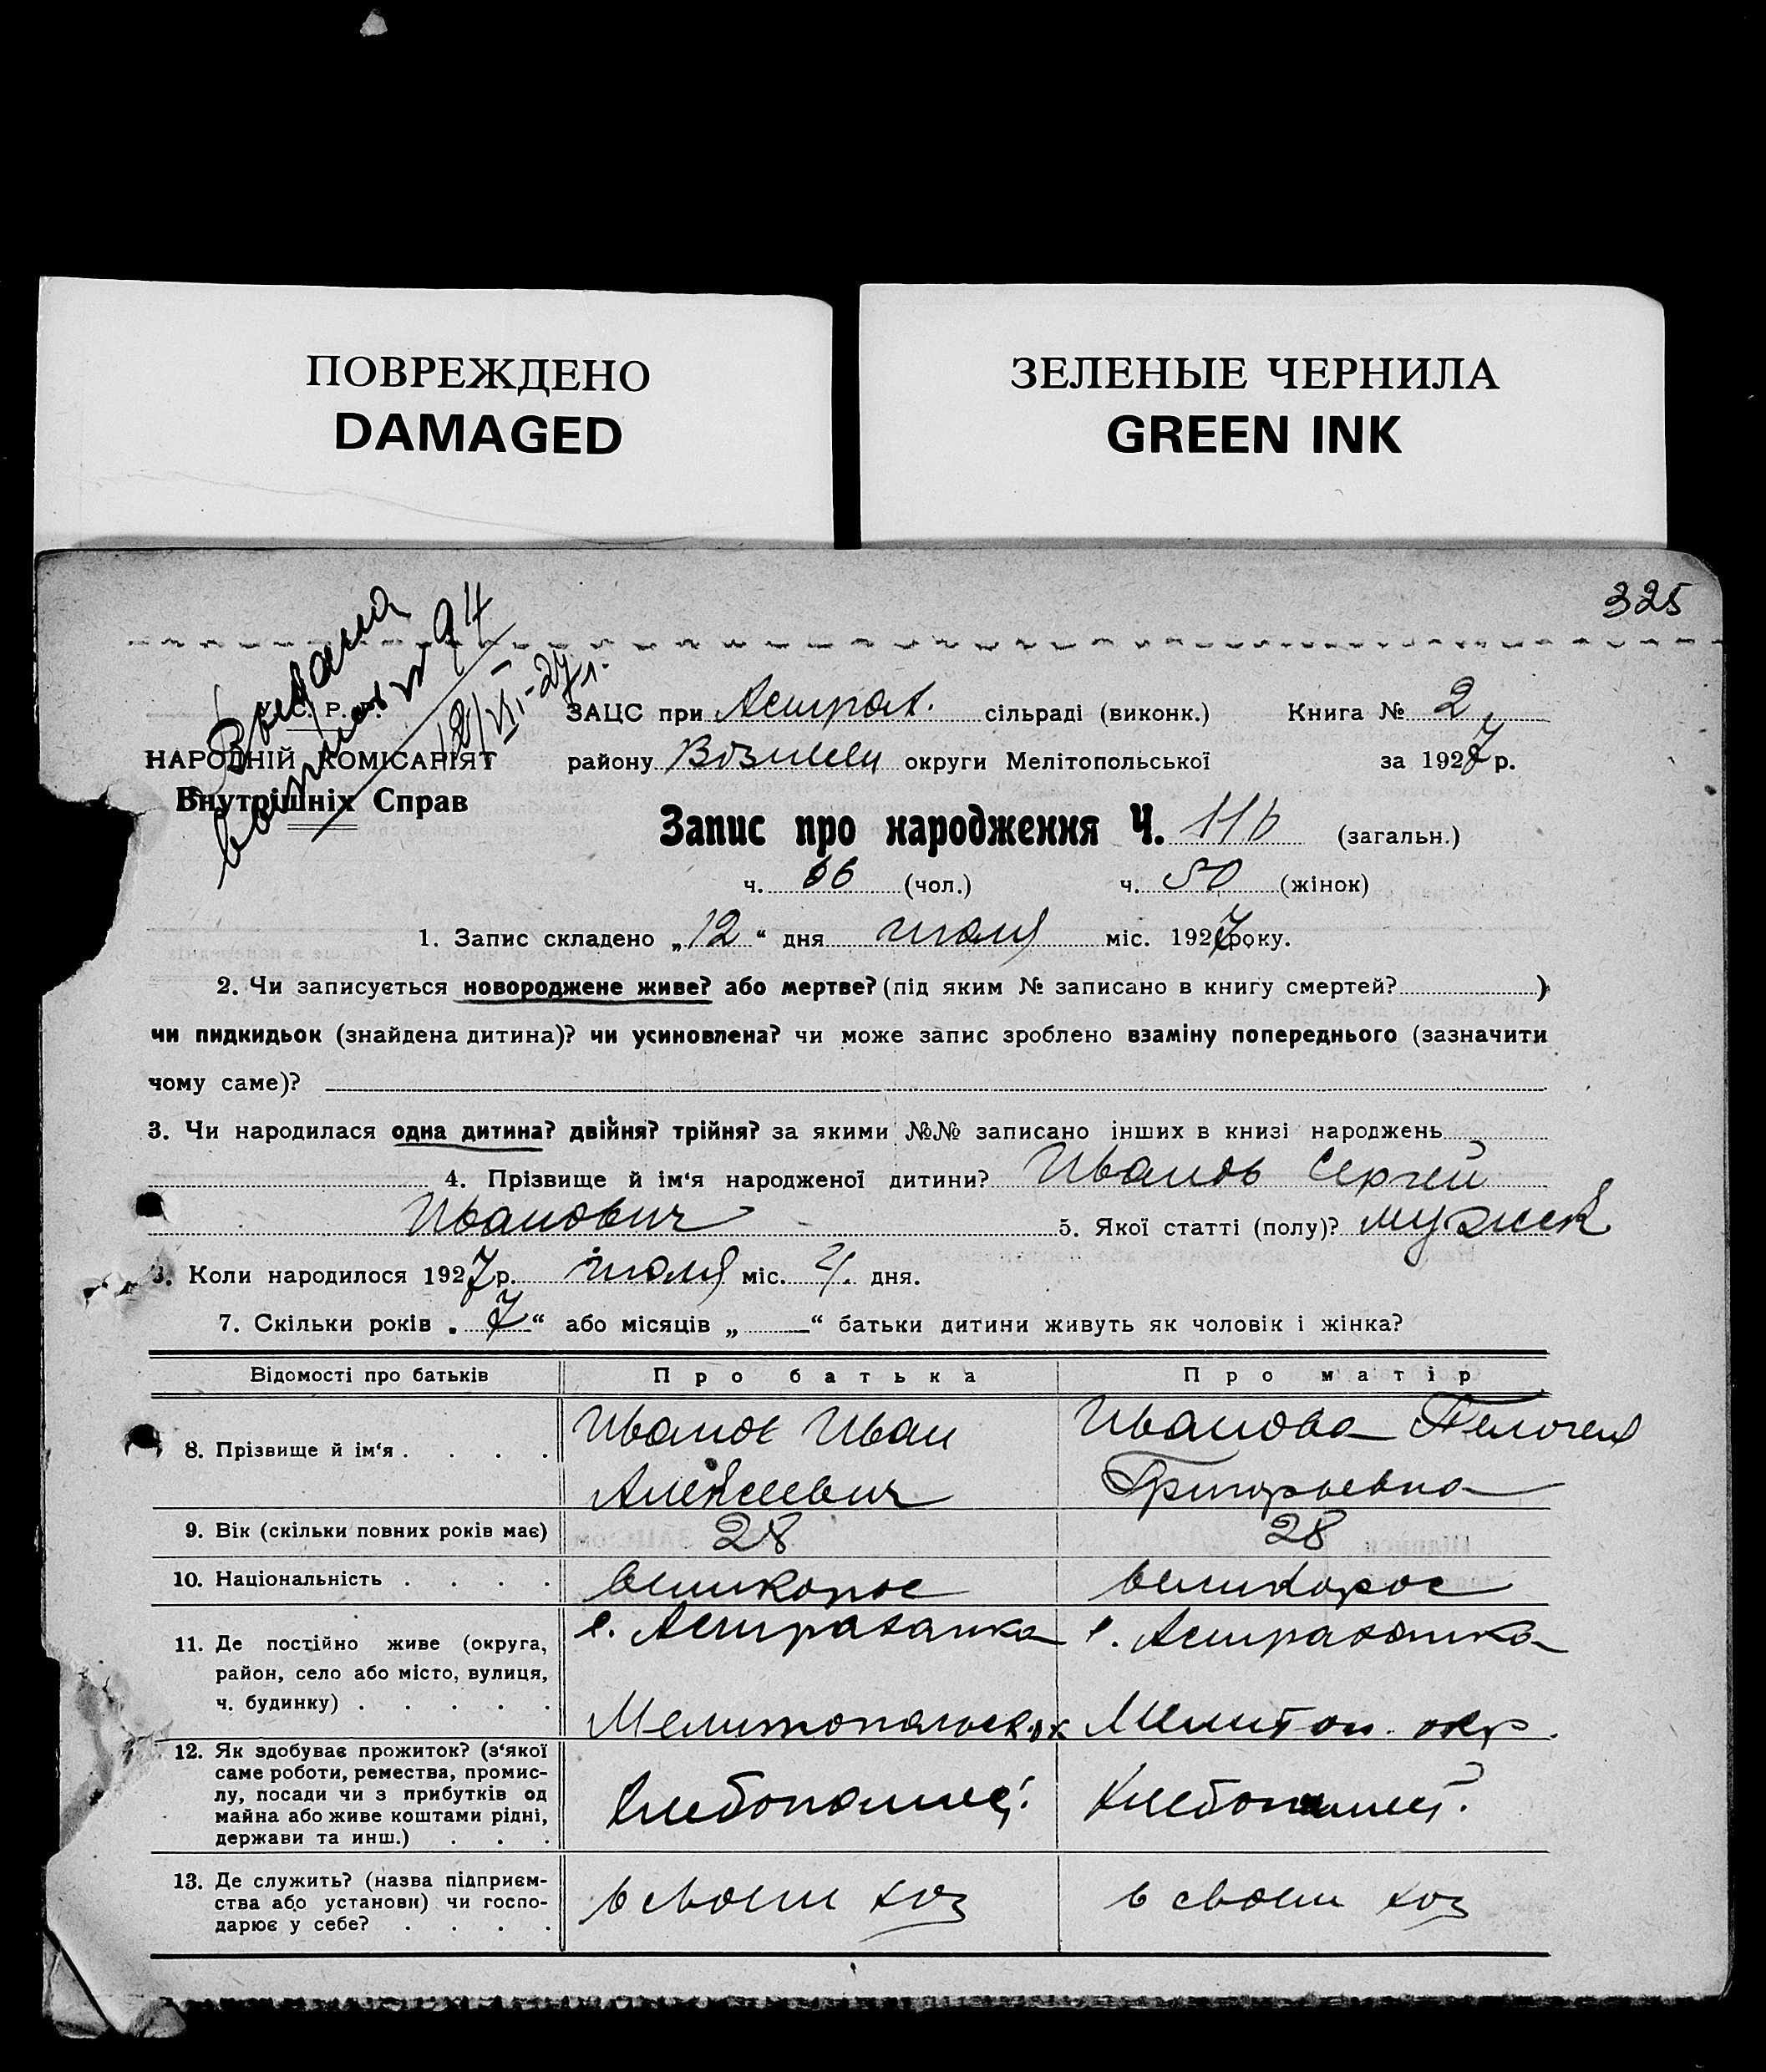 ПОВРЕЖДЕНО
DAMAGED
ЗЕЛЕНЫЕ ЧЕРНИЛА
GREEN INK
325
Выдана
94
12/VI-27 г.
У.С.Р.Р.
НАРОДНІЙ КОМІСАРІЯТ
Внутрішніх Справ
ЗАЦС при Астрах. сільраді (виконк.) Книга № 2
району Возшеен округи Мелітопольської за 1927 р.
Запис про народження Ч. 116 (загальн.)
ч. 66 (чол.) ч. 50 (жінок)
1. Запис складено „12“ дня июля міс. 1927 року.
2. Чи записується новороджене живе? або мертве? (під яким № записано в книгу смертей? )
чи пидкидьок (знайдена дитина)? чи усиновлена? чи може запис зроблено взаміну попереднього (зазначити
чому саме)?
3. Чи народилася одна дитина? двійня? трійня? за якими №№ записано інших в книзі народжень
4. Прізвище й ім‘я народженої дитини? Иванов Сергей
Иванович 5. Якої статті (полу)? мужск
6. Коли народилося 1927 р. июля міс. 4. дня.
7. Скільки років „7“ або місяців „—“ батьки дитини живуть як чоловік і жінка?
Відомості про батьків Про батька Про матір
8. Прізвище й ім‘я . . . . Иванов Иван Иванова Пелагея
Алексеевич Григорьевна
9. Вік (скільки повних років має) 28 28
10. Національність . . . . великорос великорос
11. Де постійно живе (округа, с. Астраханка с. Астраханка
район, село або місто, вулиця,
ч. будинку) . . . . . Мелитопольск. ок Мелитоп. окр.
12. Як здобуває прожиток? (з‘якої
саме роботи, ремества, промис-
лу, посади чи з прибутків од
майна або живе коштами рідні,
держави та инш.) . . . Хлебопашец. Хлебопашец.
13. Де служить? (назва підприєм-
ства або установи) чи госпо- в своем хоз в своем хоз
дарює у себе? . . . .